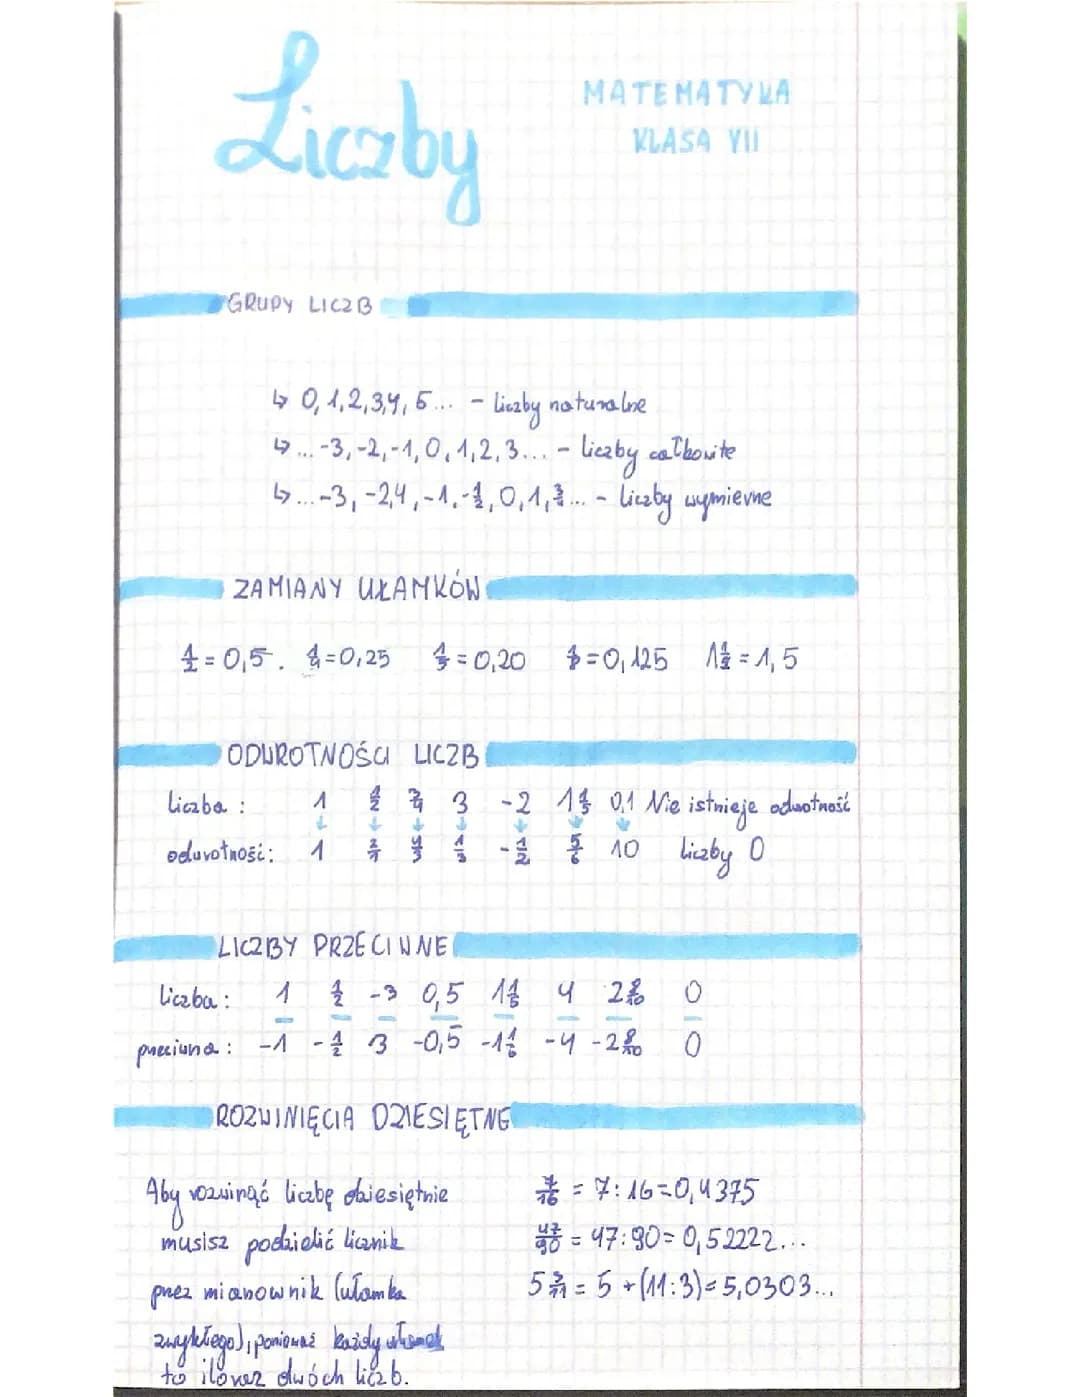 Liczby
MATEMATYKA
KLASA VII
GRUPY LICZB
↳ 0, 1, 2, 3, 4, 5... - liczby naturalne
↳ ... -3, -2, -1, 0, 1, 2, 3... - liczby całkowite
↳ ... -3, -2,4, -1, -1/2, 0, 1, 3/4... - liczby wymierne
ZAMIANY UŁAMKÓW
1/2 = 0,5. 1/4 = 0,25 1/5 = 0,20 1/8 = 0,125 1 1/2 = 1,5
ODWROTNOŚCI LICZB
liczba: 1 1/2 3/4 3 -2 1 1/5 0,1 Nie istnieje odwrotność
odwrotność: 1 2/1 4/3 1/3 -1/2 5/6 10 liczby 0
LICZBY PRZECIWNE
liczba: 1 1/2 -3 0,5 1 1/5 4 2 8/10 0
przeciwna: -1 -1/2 3 -0,5 -1 1/6 -4 -2 8/10 0
ROZWINIĘCIA DZIESIĘTNE
Aby rozwinąć liczbę dziesiętnie
musisz podzielić licznik
przez mianownik (ułamka
zwykłego), ponieważ każdy ułamek
to iloraz dwóch liczb.
7/16 = 7:16 = 0,4375
47/90 = 47:90 = 0,52222...
5 3/11 = 5 + (11:3) = 5,0303...